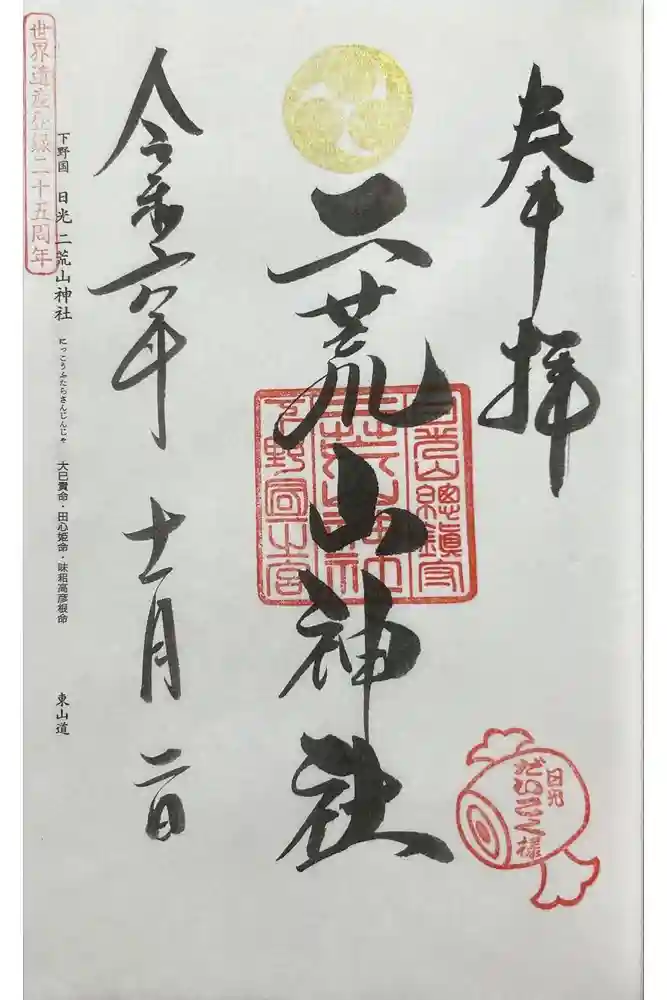 奉拝
二荒山神社
日光山總鎮守
二荒山神社
下野國一之宮
日光
だいこく様
令和六年 十一月 二日
下野国 日光二荒山神社 にっこうふたらさんじんじゃ 大巳貴命・田心姫命・味耜高彦根命 東山道
世界遺産登録二十五周年